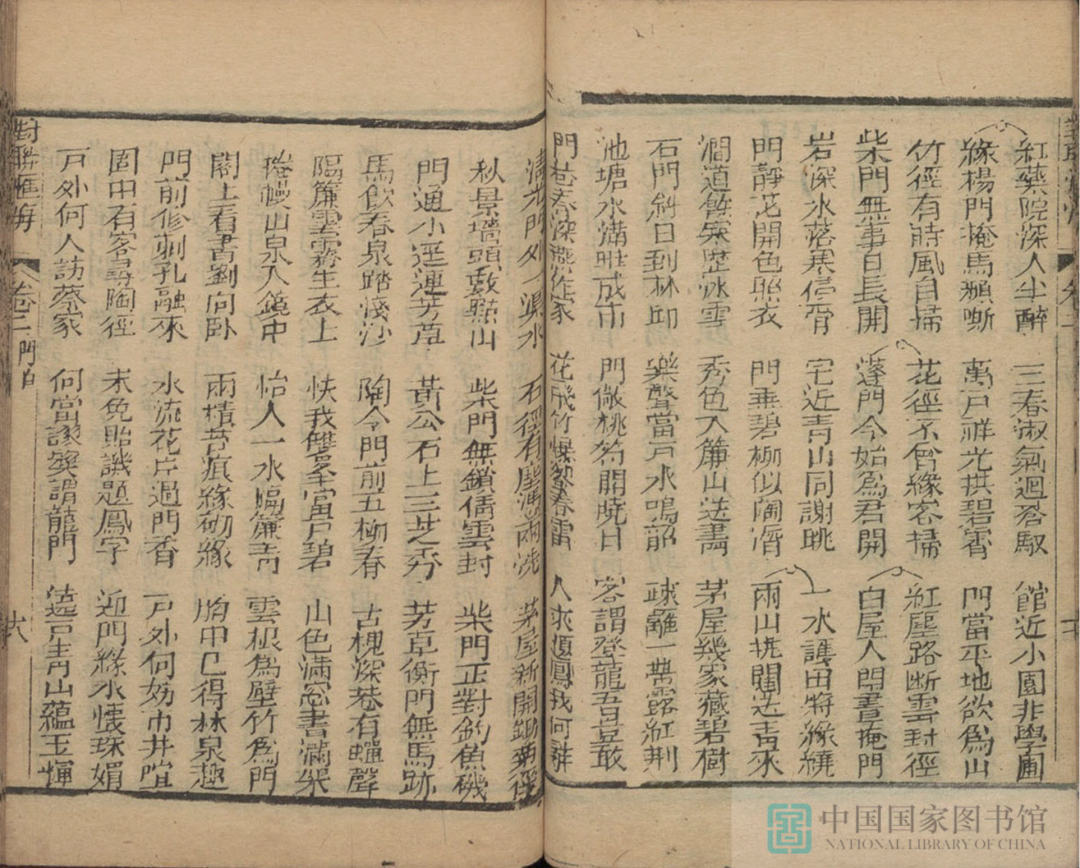 紅藥院深人半醉　三春淑氣迴　館近小園非學圃
緣楊門掩馬頻嘶　萬戶祥光拱碧霄　門當平地欲為山
竹徑有時風自掃　花徑不曾緣客掃　紅塵路断雲封徑
柴門無事日長開　蓬門今始為君開　白屋人閒晝掩門
岩深水落寒侵骨　宅近青山同謝眺　一水護田將綠繞
門靜花開色照衣　門垂碧柳似陶潛　兩山排闥送青來
澗道餘寒歷冰雪　秀色入簾山送畫　茅屋幾家藏碧樹
石門斜日到林邱　樂聲當戶水鳴韶　疎籬一帶露紅荆
池塘水滿蛙成市　門儆桃符開曉日　客謂登龍吾豈敢
門巷春深燕作家　花飛竹爆發春雷　人來題鳳我何辭
清光門外一渠水　石徑有塵憑雨洗　茅屋新開鋤菊徑
秋景墻頭數點山　柴門無鎖倩雲封　柴門正對釣魚磯
門通小逕連芳草　黃公石上三芝秀　芳草衡門無馬跡
馬飲春泉踏淺沙　陶令門前五柳春　古槐深巷有蟬聲
隔簾雲霧生衣上　快我雙峯當戶碧　山色滿窓書滿架
捲幔山泉入鏡中　怡人一水隔簾青　雲根為壁竹為門
閣上看書劉向卧　雨積苔痕緣砌綠　胸中已得林泉趣
門前修刺孔融來　水流花片過門香　戶外何妨市井喧
園中有客尋陶徑　未免貽譏題鳳字　近門綠水懷珠媚
戶外何人訪蔡家　何當謬奨謂龍門　遶戶青山蘊玉輝
對聯匯海　卷二門白　六
中国国家图书馆
NATIONAL LIBRARY OF CHINA